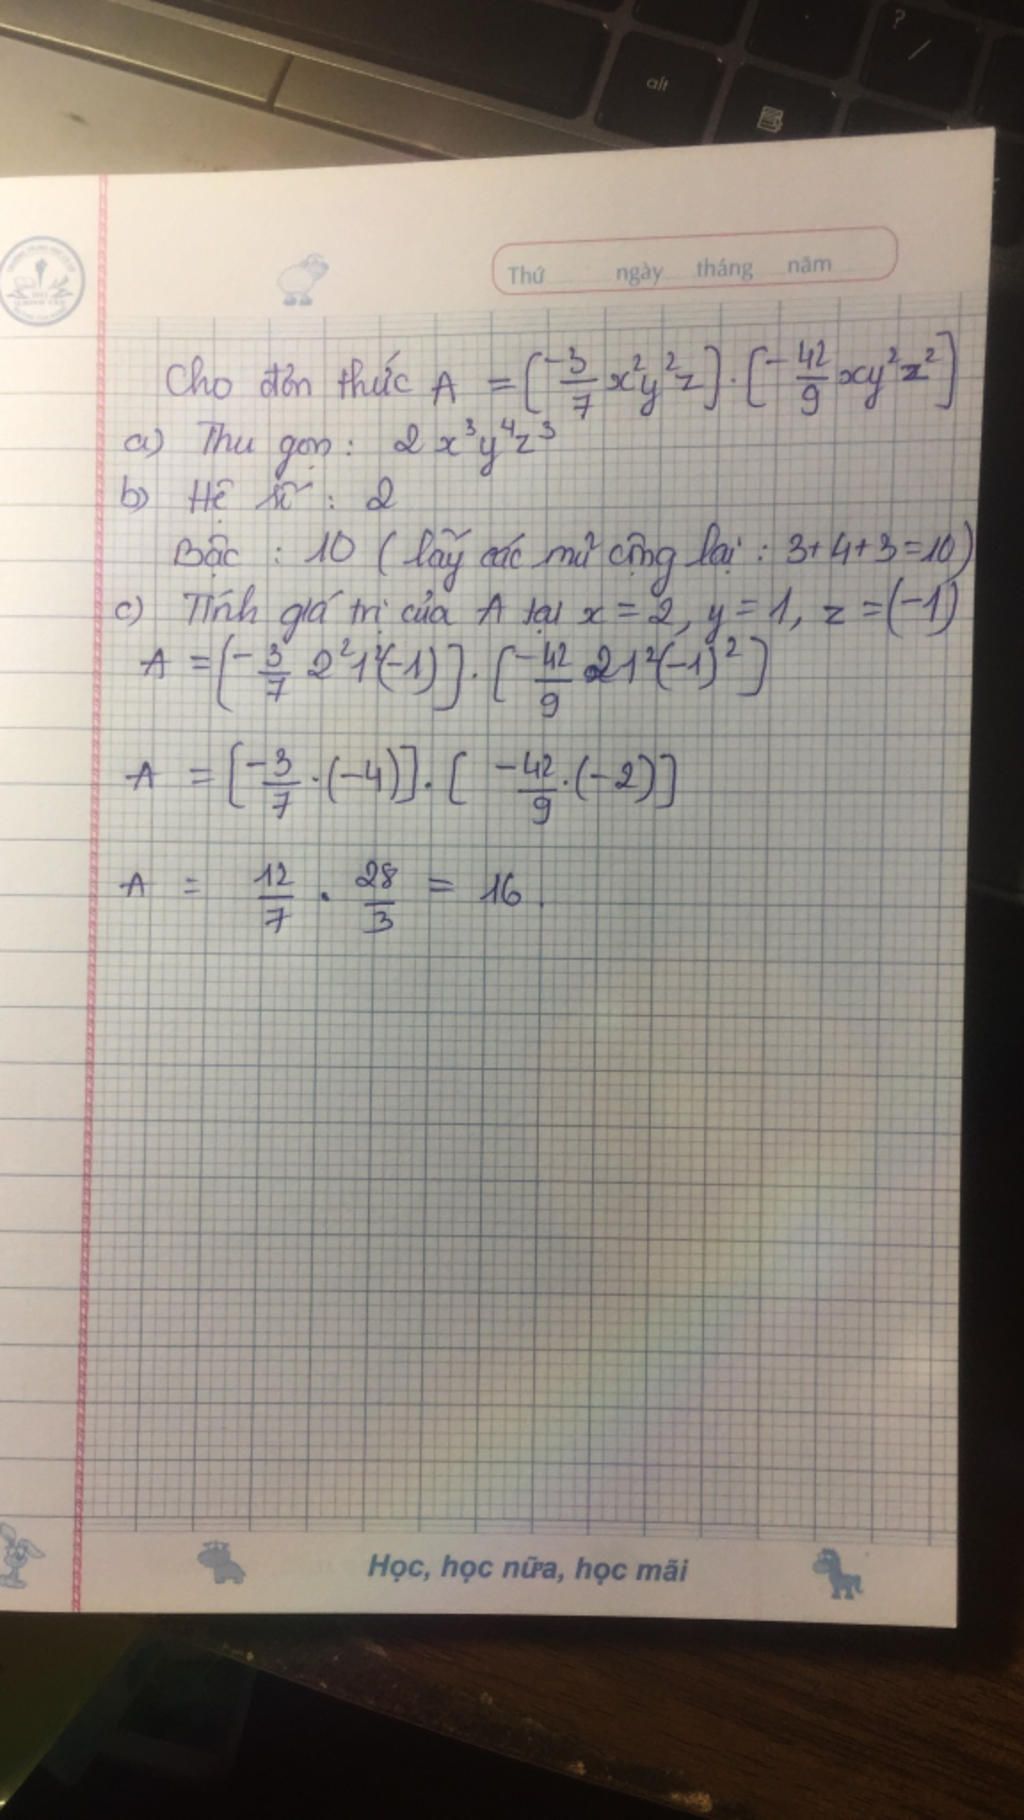 alt
?
/
Thứ ngày tháng năm
Cho đơn thức A = [-3/7 x²y²z] . [-42/9 xy²z²]
a) Thu gọn : 2x³y⁴z³
b) Hệ số : 2
Bậc : 10 ( lấy các mũ cộng lại : 3+4+3=10)
c) Tính giá trị của A tại x = 2, y = 1, z = (-1)
A = [-3/7 2²1²(-1)] . [-42/9 21²(-1)²]
A = [-3/7 . (-4)] . [ -42/9 . (-2)]
A = 12/7 . 28/3 = 16.
Học, học nữa, học mãi